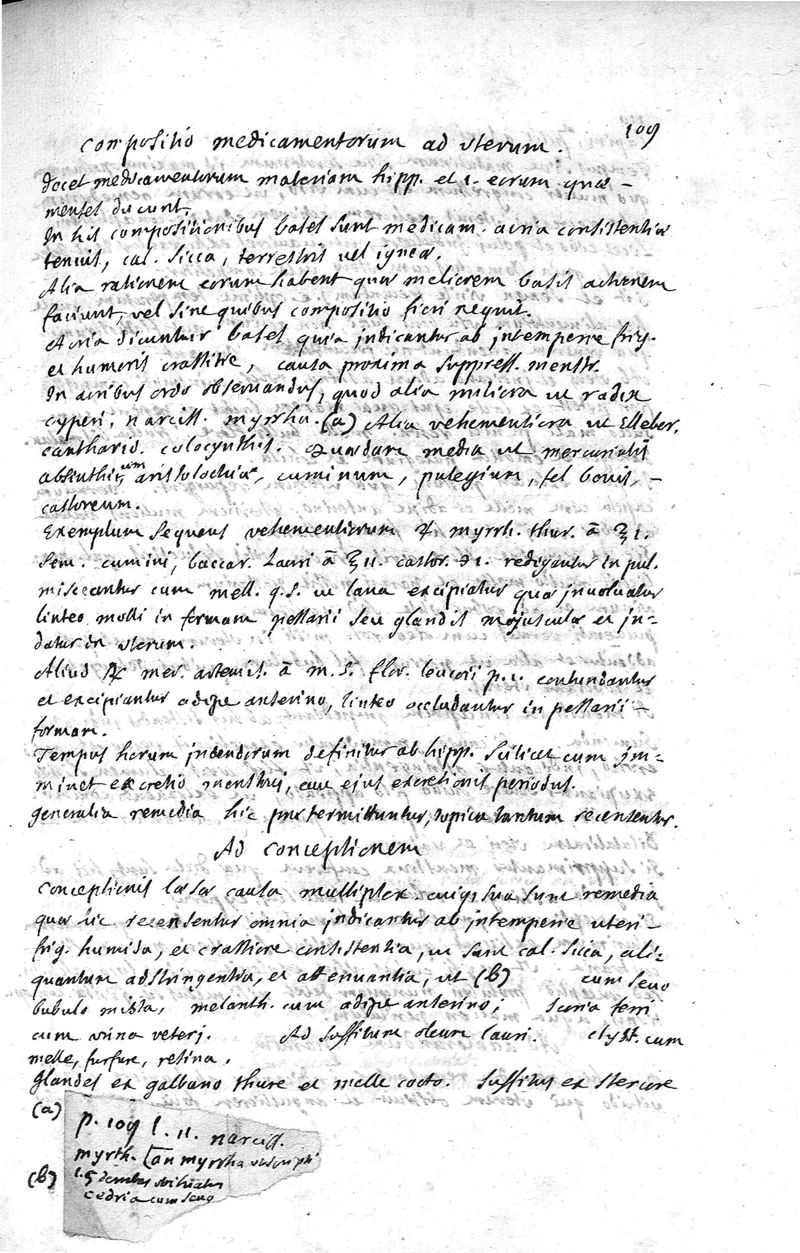 109
Compositio medicamentorum ad uterum.
docet medicamentorum materiam hipp. et 1. eorum quæ –
menses ducunt.
In his compositionibus bases sunt medicam. acria consistentiæ
tenuis, cal. sicca, terrestris vel igneæ.
Alia rationem eorum habent quæ meliorem basis actionem
faciunt, vel sine quibus compositio fieri nequit.
Acria dicuntur bases quia indicantur ab intemperie frig.
et humoris crassitie, causa proxima suppress. menstr.
In acribus ordo observandus, quod alia mitiora ut radix
cyperi, narciss. myrrha. (a) Alia vehementiora ut Elleber.
cantharid. colocynthis. Quædam media ut mercurialis
absinthium, aristolochiæ, cuminum, pulegium, fel bovis, –
castoreum.
Exemplum sequens vehementiorum ℞ myrrh. thur. ā ʒ 1.
sem. cumini, baccar. Lauri ā ʒ 11. castor. ℈ 1. redigantur in pul.
misceantur cum mell. q.s. ut lana excipiatur quæ involvatur
linteo molli in formam pessarii seu glandis majusculæ et in-
datur in uterum.
Aliud ℞ mer. artemis. ā m. s. flor. leucoii p. 1. contundantur
et excipiantur adipe anserino, linteo occludantur in pessarii –
formam.
Tempus horum indendorum definitur ab hipp. scilicet cum im-
minet excretio menstrui, cum ejus excretionis periodus.
generalia remedia hic prætermittuntur, topica tantum recensentur.
Ad conceptionem
Conceptionis læsæ causa multiplex. cuiq; sua sunt remedia
quæ hic recensentur omnia indicantur ab intemperie uteri –
frig. humida, et crassiore consistentia, ut sunt cal. sicca, ali-
quantum adstringentia, et attenuantia, ut (b) cum sevo
bubulo mista, melanth. cum adipe anserino; scoria ferri
cum urina veteri. Ad suffitum oleum lauri. clyst. cum
melle, furfure, resina.
Glandes ex galbano thure et melle cocto. suffitus ex stercore
(a) p. 109 l. 11. narciss.
myrth. [an myrrha
(b) l. 5
cedria cum sevo